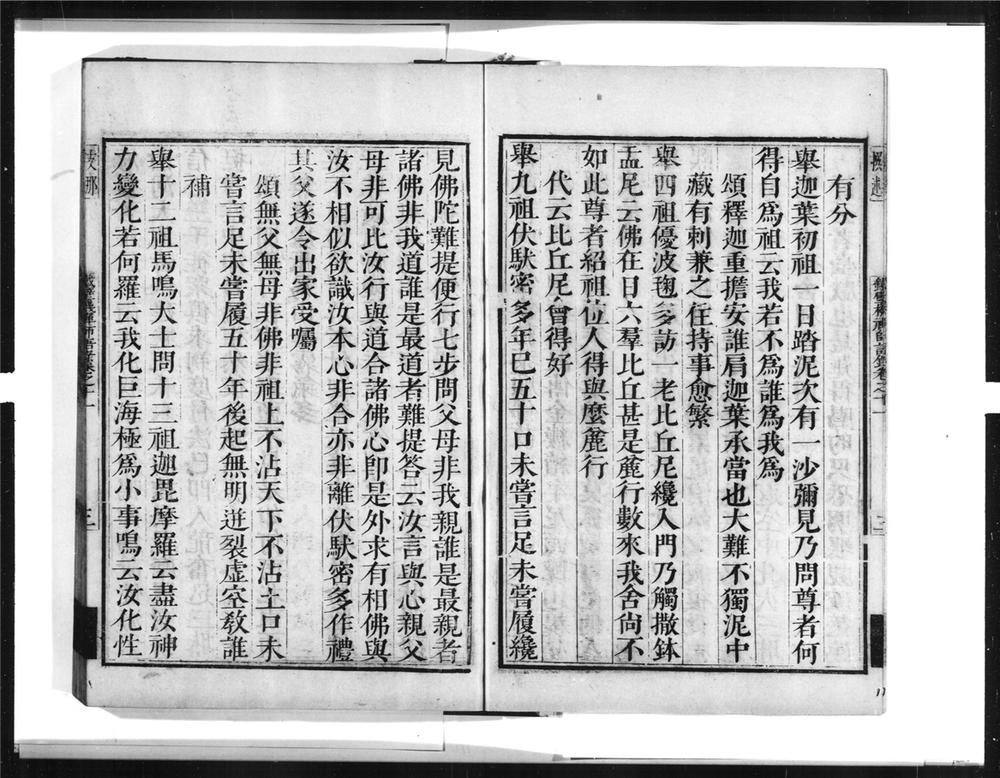 有分
舉迦葉初祖一日踏泥次有一沙彌見乃問尊者何
得自爲祖云我若不爲誰爲我爲
頌釋迦重擔安誰肩迦葉承當也大難不獨泥中
藏有刺兼之住持事愈繁
舉四祖優波毱多訪一老比丘尼纔入門乃觸撒鉢
盂尼云佛在日六羣比丘甚是麄行數來我舍尚不
如此尊者紹祖位人得與麽麄行
代云比丘尼會得好
舉九祖伏馱密多年巳五十口未嘗言足未嘗履纔
見佛陀難提便行七步問父母非我親誰是最親者
諸佛非我道誰是最道者難提答云汝言與心親父
母非可比汝行與道合諸佛心卽是外求有相佛與
汝不相似欲識汝本心非合亦非離伏馱密多作禮
其父遂令出家受屬
頌無父無母非佛非祖上不沾天下不沾土口未
嘗言足未嘗履五十年後起無明迸裂虛空敎誰
補
舉十二祖馬鳴大士問十三祖迦毘摩羅云盡汝神
力變化若何羅云我化巨海極爲小事鳴云汝化性